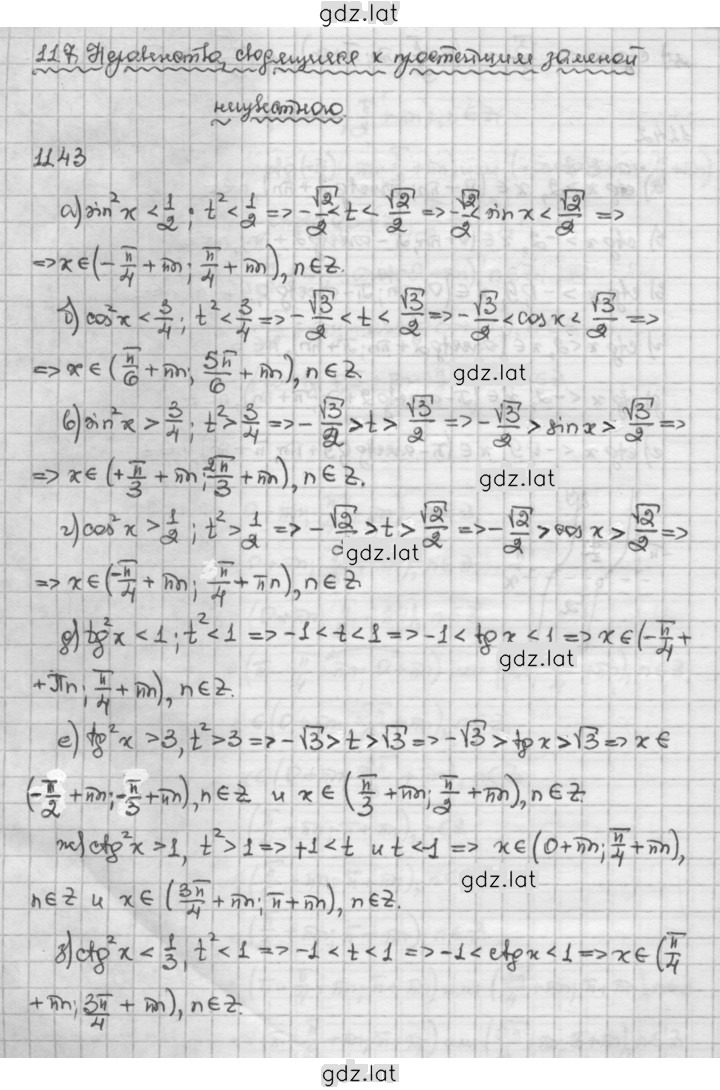 gdz.lat
11.7 Неравенства, сводящиеся к простейшим заменой
неизвестного.
1143
а) sin²x < 1/2; t² < 1/2 => -√2/2 < t < √2/2 => -√2/2 < sin x < √2/2 =>
=> x ∈ (-π/4 + πn; π/4 + πn), n ∈ Z.
б) cos²x < 3/4; t² < 3/4 => -√3/2 < t < √3/2 => -√3/2 < cos x < √3/2 =>
=> x ∈ (π/6 + πn; 5π/6 + πn), n ∈ Z.
gdz.lat
в) sin²x > 3/4; t² > 3/4 => -√3/2 > t > √3/2 => -√3/2 > sin x > √3/2 =>
=> x ∈ (+π/3 + πn; 2π/3 + πn), n ∈ Z.
gdz.lat
г) cos²x > 1/2; t² > 1/2 => -√2/2 > t > √2/2 => -√2/2 > cos x > √2/2 =>
gdz.lat
=> x ∈ (-π/4 + πn; π/4 + πn), n ∈ Z.
д) tg²x < 1; t² < 1 => -1 < t < 1 => -1 < tg x < 1 => x ∈ (-π/4 +
gdz.lat
+ πn; π/4 + πn), n ∈ Z.
е) tg²x > 3, t² > 3 => -√3 > t > √3 => -√3 > tg x > √3 => x ∈
(-π/2 + πn; -π/3 + πn), n ∈ Z и x ∈ (π/3 + πn; π/2 + πn), n ∈ Z.
ж) ctg²x > 1, t² > 1 => +1 < t и t < -1 => x ∈ (0 + πn; π/4 + πn),
gdz.lat
n ∈ Z и x ∈ (3π/4 + πn; π + πn), n ∈ Z.
з) ctg²x < 1/3, t² < 1 => -1 < t < 1 => -1 < ctg x < 1 => x ∈ (π/4
+ πn; 3π/4 + πn), n ∈ Z.
gdz.lat